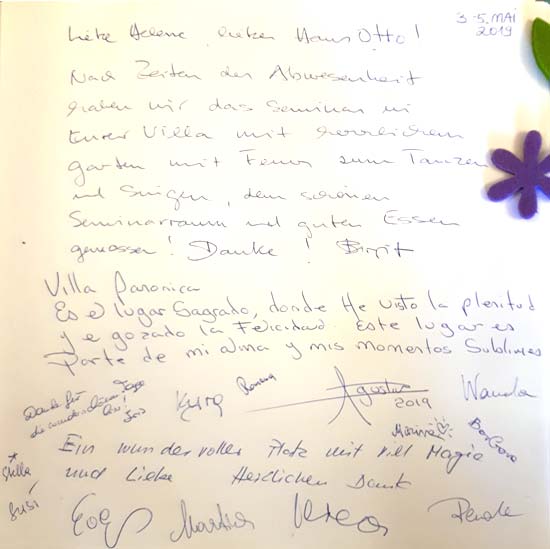 3-5. MAI
2019
Liebe Helene, lieber Hans Otto!
Nach Zeiten der Abwesenheit
haben wir das Seminar in
Eurer Villa mit herrlichem
Garten mit Feuer zum Tanzen
und Singen, dem schönen
Seminarraum und guten Essen
genossen! Danke! Birgit
Villa Panonica
Es el lugar Sagrado, donde He visto la plenitud
y e gozado la Felicidad. Este lugar es
Parte de mi alma y mis momentos Sublimes
Danke für
die wunderschönen Tage
Ramona
Agostus
2019
Wanda
Barbara
Ein wundervoller Platz mit viel Magie
und Liebe Herzlichen Dank
Stella
Susi
Martha
Renate